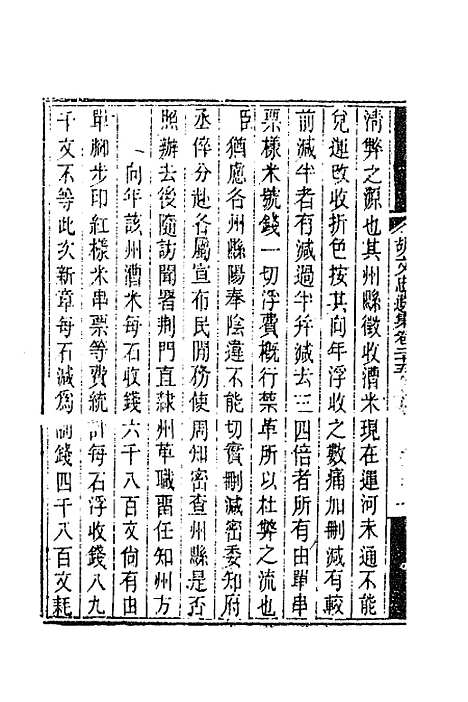 清弊之源也其州縣徵收漕米現在運河未通不能
兌運改收折色按其向年浮收之數痛加刪減有較
前減半者有減過半并減去三四倍者所有由單串
票樣米號錢一切浮費概行禁革所以杜弊之流也
臣猶慮各州縣陽奉陰違不能切實刪減密委知府
丞倅分赴各屬宣布民間務使周知密查州縣是否
照辦去後隨訪聞署荆門直隸州革職畱任知州方
向年該州漕米每石收錢六千八百文尙有由
單腳步印紅樣米串票等費統計每石浮收錢八九
千文不等此次新章每石減為制錢四千八百文耗
胡文忠遺集卷二十五